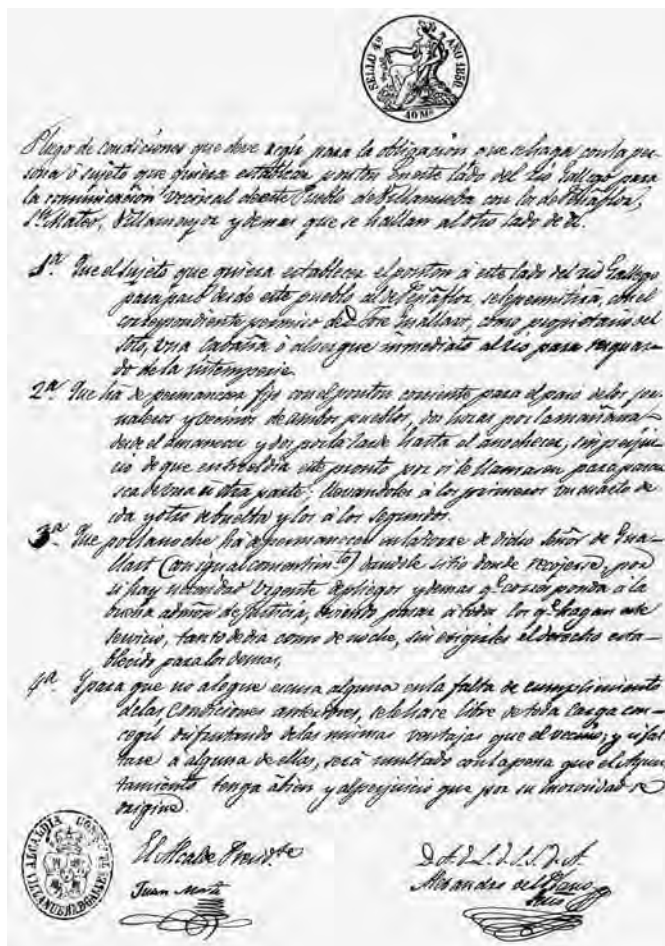 SELLO 4º AÑO 1850
40 Ms
Pliego de condiciones que deve regir para la obligacion que se haga con la per-
sona ó sujeto que quiera establecer ponton en este lado del rio Gallego para
la comunicacion vecinal de este Pueblo de Villanueva con los de Peñaflor,
Sn. Mateo, Villamayor y demas que se hallan al otro lado de el.
1ª Que el sujeto que quiera establecer el ponton á este lado del rio Gallego
para paso desde este pueblo al de Peñaflor, se le permitirá, con el
correspondiente permiso de D. Jose Guallart, como propietario del
soto, una cabaña ó albergue inmediato al rio, para resguar-
do de la intemperie.
2ª Que ha de permanecer fijo con el ponton corriente para el paso de los jor-
naleros y vecinos de ambos pueblos, dos horas por la mañana
desde el amanecer y dos por la tarde hasta el anochecer, sin perjui-
cio de que entre el dia esté pronto por si le llamaren para pasar
sea de una ú otra parte; llevandoles á los primeros un cuarto de
ida y otro de buelta y los á los segundos.
3ª Que por la noche ha de permanecer en la torre de dicho Señor de Gua-
llart (con igual consentimto) dandole sitio donde recojerse, por
si hay necesidad urgente de pliegos y demas q.e corresponda á la
buena admon de Justicia, deviendo pasar á todos los q.e hagan este
servicio, tanto de dia como de noche, sin exigirles el derecho esta-
blecido para los demas.
4ª Y para que no alegue escusa alguna en la falta de cumplimiento
de las condiciones anteriores, se le hace libre de toda carga con-
cegil disfrutando de las mismas ventajas que el vecino; y si fal
tare á alguna de ellas, será multado con la pena que el Ayun
tamiento tenga á bien y al perjuicio que por su morosidad se
origine.
El Alcalde Presid.te
Juan Marti
D. A. d. L. d. S. S. d. A.
Alexandro del
Srio
ALCALDIA CONST. DE VILLANUEVA DE GALLEGO